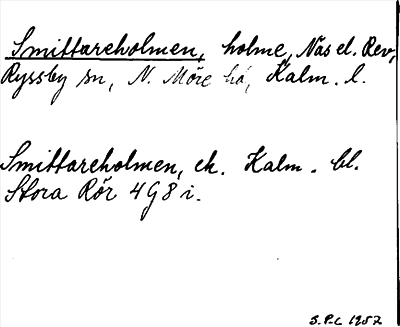 Smittareholmen, holme, Näs el. Rev,
Ryssby sn, N. Möre hd, Kalm. l.
Smittareholmen, ek. Kalm. bl.
Stora Rör 4G8i.
S. P-C 1957